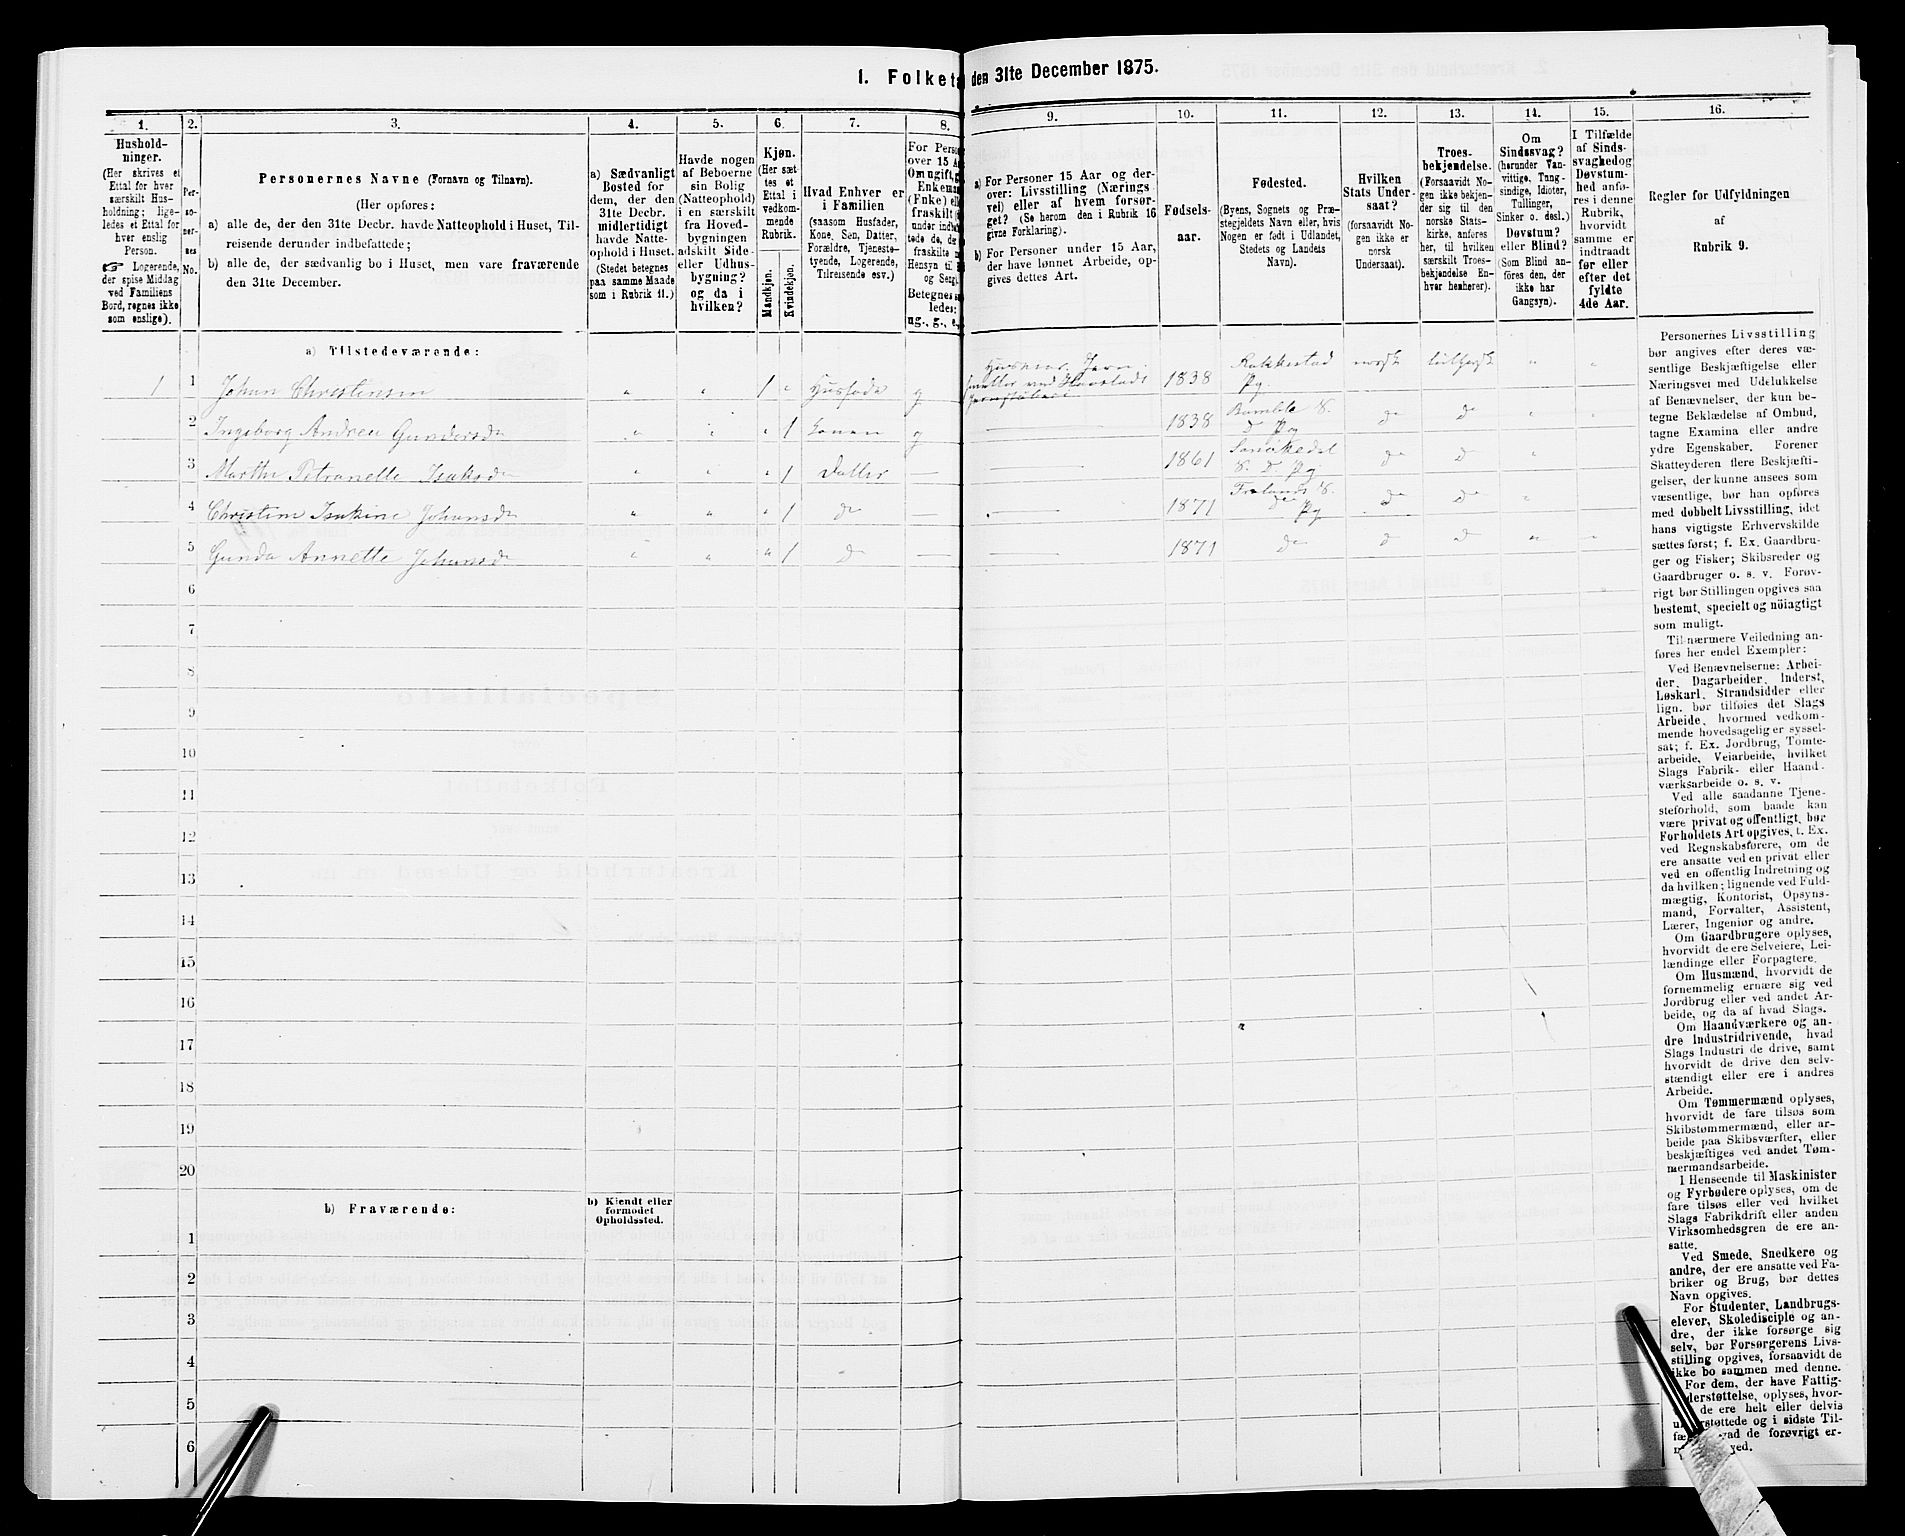 1. Folketa den 31te December 1875.
1.
Hushold-
ninger.
(Her skrives et
Ettal for hver
særskilt Hus-
holdning; lige-
ledes et Ettal for
hver enslig
Person.
☞ Logerende,
der spise Middag
ved Familiens
Bord, regnes ikke
som enslige).
2.
Per-
so-
ner-
nes
No.
3.
Personernes Navne (Fornavn og Tilnavn).
(Her opføres:
a) alle de, der den 31te Decbr. havde Natteophold i Huset, Til-
reisende derunder indbefattede;
b) alle de, der sædvanlig bo i Huset, men vare fraværende
den 31te December.
4.
a) Sædvanligt
Bosted for
dem, der den
31te Decbr.
midlertidigt
havde Natte-
ophold i Huset.
(Stedet betegnes
paa samme Maade
som i Rubrik 11.)
5.
Havde nogen
af Beboerne
sin Bolig
(Natteophold)
i en særskilt
fra Hoved-
bygningen
adskilt Side-
eller Udhus-
bygning?
og da i
hvilken?
6.
Kjøn.
(Her sæt
tes et
Ettal i
vedkom-
mende
Rubrik.
Mandkjøn.
Kvindekjøn.
7.
Hvad Enhver er
i Familien
(saasom Husfader,
Kone, Søn, Datter,
Forældre, Tjeneste-
tyende, Logerende,
Tilreisende osv.)
8.
For Perso
over 15 A
Om ugift, g
Enkema
(Fnke) ell
fraskilt (
under indb
tede de, de
fraskilte
Hensyn ti
og Seng).
Betegnes s
ledes:
ug., g., e.
9.
a) For Personer 15 Aar og der-
over: Livsstilling (Nærings
vei) eller af hvem forsør-
get? (Se herom den i Rubrik 16
givne Forklaring).
b) For Personer under 15 Aar,
der have lønnet Arbeide, op-
gives dettes Art.
10.
Fødsels-
aar.
11.
Fødested.
(Byens, Sognets og Præ-
stegjeldets Navn eller, hvis
Nogen er født i Udlandet,
Stedets og Landets
Navn).
12.
Hvilken
Stats Under-
saat?
(forsaavidt No-
gen ikke er
norsk
Undersaat).
13.
Troes-
bekjendelse.
(Forsaavidt No-
gen ikke bekjen-
der sig til den
norske Stats-
kirke, anføres
her, til hvilken
særskilt Troes-
bekjendelse En-
hver henhører).
14.
Om
Sindssvag?
(herunder Van-
vittige, Tung-
sindige, Idioter,
Tullinger,
Sinker o. desl.)
Døvstum?
eller Blind?
(Som Blind an-
føres den, der
ikke har
Gangsyn).
15.
I Tilfælde
af Sinds-
svaghed og
Døvstum-
hed anfø-
res i denne
Rubrik,
hvorvidt
samme er
indtraadt
før eller
efter det
fyldte
4de Aar.
16.
Regler for Udfyldningen
af
Rubrik 9.
a) Tilstedeværende:
1 1 Johan Christensen " " 1 " Husfader g 1838 Rakkestad Pg. norsk luthersk " "
2 Ingeborg Andrea Gundersdr " " " 1 Konen g — 1838 Bamble S. d Pg do do " "
3 Marthe Petranelle Isaksdr " " " 1 Datter — — 1861 Sanøkedal S. d. Pg do d "
4 Christine Isakine Johansdr " " " 1 do — — 1871 Frolands S. do Pg do do "
5 Gunda Annette Johansdr " " " 1 do — — 1871 do d d " "
6
7
8
9
10
11
12
13
14
15
16
17
18
19
20
b) Fraværende:
b) Kjendt eller
formodet
Opholdssted.
1
2
3
4
5
6
Personernes Livsstilling
bør angives efter deres væ-
sentlige Beskjæftigelse eller
Næringsvei med Udelukkelse
af Benævnelser, der kun be-
tegne Beklædelse af Ombud,
tagne Examina eller andre
ydre Egenskaber. Forener
Skatteyderen flere Beskjæfti-
gelser, der kunne ansees som
væsentlige, bør han opføres
med dobbelt Livsstilling, idet
hans vigtigste Erhvervskilde
sættes først; f. Ex. Gaardbru-
ger og Fisker; Skibsreder og
Gaardbruger o. s. v. Forøv-
rigt bør Stillingen opgives saa
bestemt, specielt og nöiagtigt
som muligt.
Til nærmere Veiledning an-
føres her endel Exempler:
Ved Benævnelserne: Arbei-
der, Dagarbeider, Inderst,
Løskarl, Strandsidder eller
lign. bør tilføies det Slags
Arbeide, hvormed vedkom-
mende hovedsagelig er syssel-
sat; f. Ex. Jordbrug, Tømte-
arbeide, Veiarbeide, hvilket
Slags Fabrik- eller Haand-
værksarbeide o. s. v.
Ved alle saadanne Tjene-
steforhold, som baade kan
være privat og offentligt, bør
Forholdets Art opgives, t. Ex.
ved Regnskabsførere, om de
ere ansatte ved en privat eller
ved en offentlig Indretning og
da hvilken; lignende ved Fuld-
mægtig, Kontorist, Opsyns-
mand, Forvalter, Assistent,
Lærer, Ingeniør og andre.
Om Gaardbrugere oplyses,
hvorvidt de ere Selveiere, Lei-
lændinge eller Forpagtere.
Om Husmænd, hvorvidt de
fornemmelig ernære sig ved
Jordbrug eller ved andet Ar-
beide, og da af hvad Slags.
Om Haandværkere og an-
dre Industridrivende, hvad
Slags Industri de drive, samt
hvorvidt de drive den selv-
stændigt eller ere i andres
Arbeide.
Om Tømmermænd oplyses,
hvorvidt de fare tilsøs som
Skibstømmermænd, eller ar-
beide paa Skibsværfter, eller
beskjæftiges ved andet Tøm-
mermandsarbeide.
I Henseende til Maskinister
og Fyrbødere oplyses, om de
fare tilsøs eller ved hvilket
Slags Fabrikdrift eller anden
Virksomhedsgren de ere an-
satte.
Ved Smede, Snedkere og
andre, der ere ansatte ved Fa-
briker og Brug, bør dettes
Navn opgives.
For Studenter, Landbrugs-
elever, Skoledisciple og an-
dre, der ikke forsørge sig
selv, bør Forsørgerens Livs-
stilling opgives, forsaavidt de
ikke bo sammen med denne.
For dem, der have Fattig-
derstøttelse, oplyses, hvor-
de ere helt eller delvis
støttede og i sidste Til-
vad de forøvrigt er-
ved.